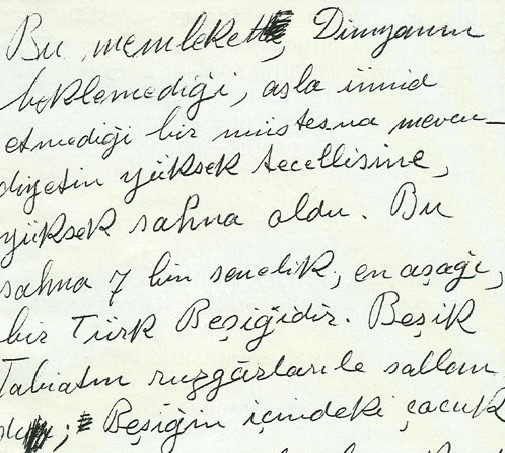 Bu memleket, Dünyanın
beklemediği, asla ümid
etmediği bir müstesna mevcu-
diyetin yüksek tecellisine,
yüksek sahna oldu. Bu
sahna 7 bin senelik, en aşağı,
bir Türk Beşiğidir. Beşik
Tabiatın ruzgârlarile sallan
dı; Beşiğin içindeki çocuk